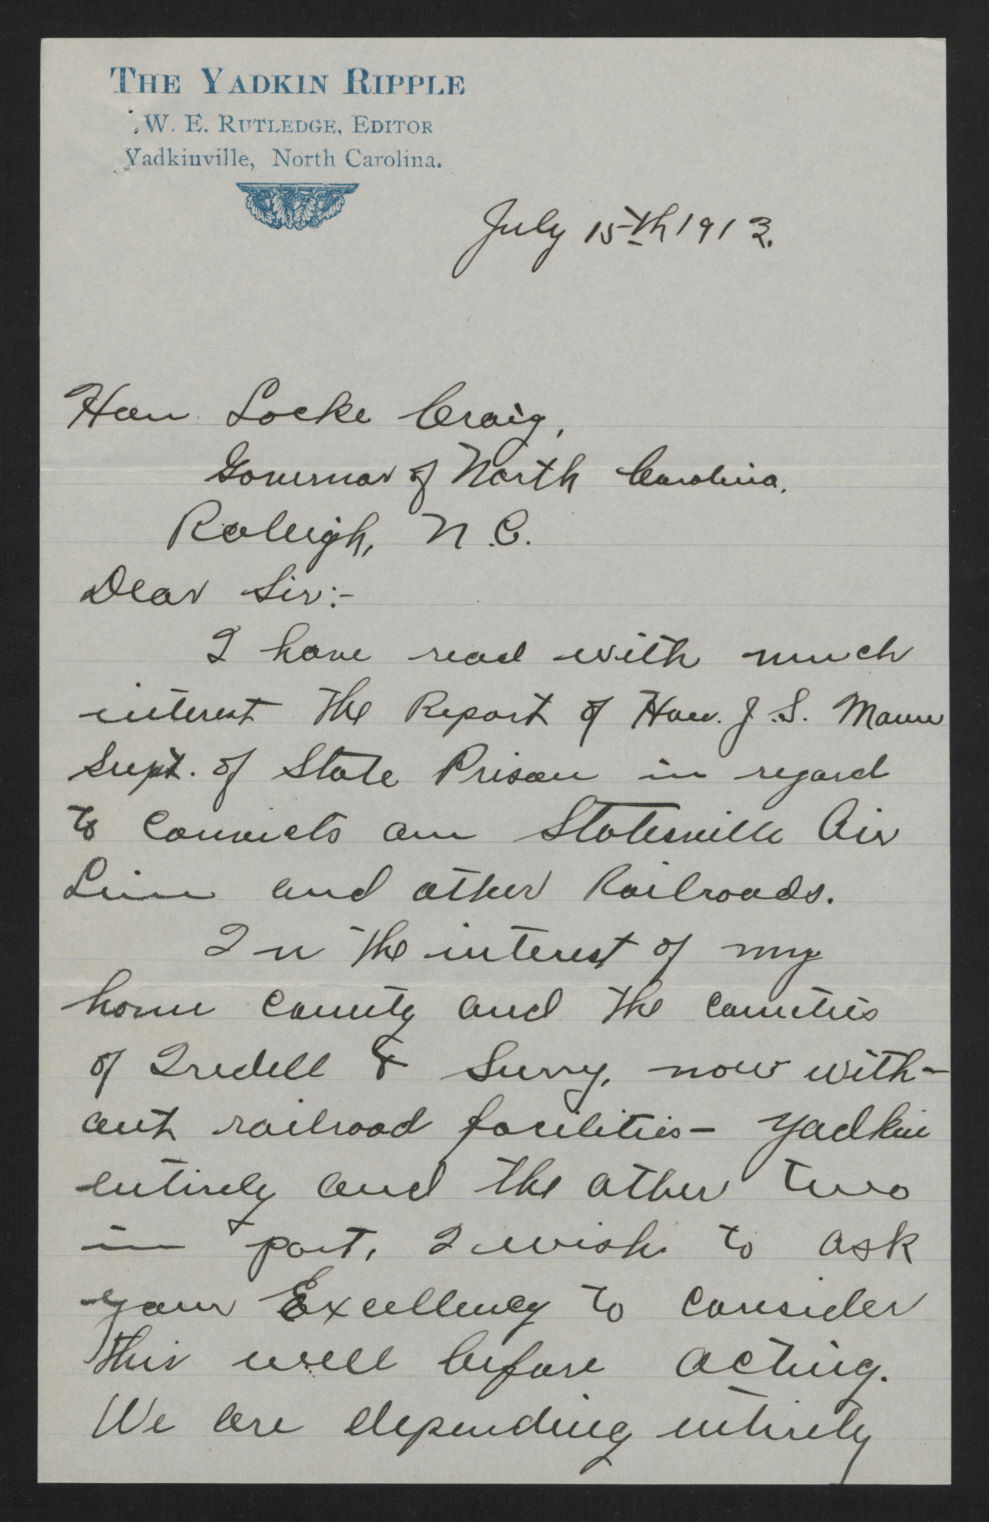 THE YADKIN RIPPLE
W. E. RUTLEDGE, EDITOR
Yadkinville, North Carolina.
July 15th 1913.
Hon Locke Craig,
Governor of North Carolina.
Raleigh, N.C.
Dear Sir:-
I have read with much
interest the Report of Hon. J.S. Mann
Supt. of State Prison in regard
to convicts on Statesville Air
Line and other Railroads.
In the interest of my
home county and the counties
of Iredell & Surry, now with-
out railroad facilities- Yadkin
entirely and the other two
in part, I wish to ask
your Excellency to consider
this well before acting.
We are depending entirely